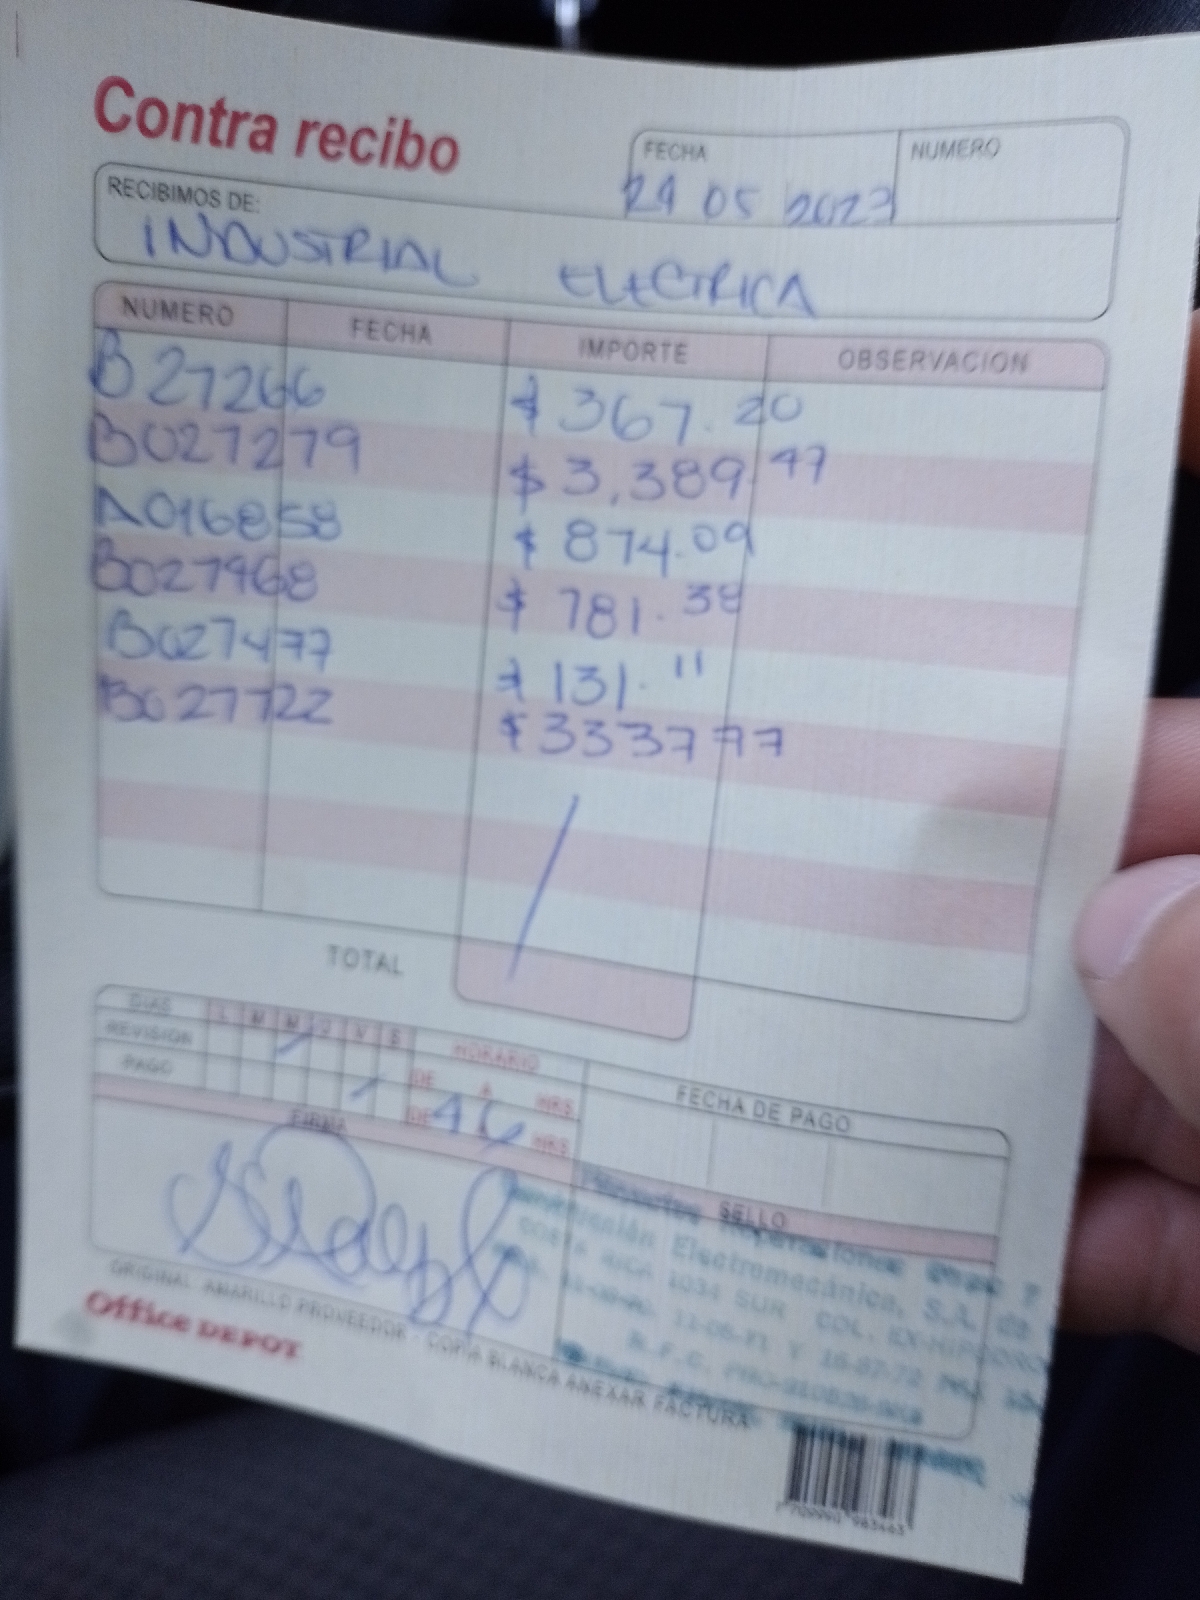 Contra recibo
FECHA
NUMERO
24 05 2023
RECIBIMOS DE:
INDUSTRIAL ELECTRICA
NUMERO FECHA IMPORTE OBSERVACION
B 27266 $ 367.20
B027279 $ 3,389.47
A016858 $ 874.09
B027468 $ 781.38
B027477 $ 131.11
B027722 $ 3337 77
TOTAL
DIAS L M M J V S HORARIO
REVISION DE A HRS
PAGO DE 4 6 HRS
FECHA DE PAGO
FIRMA
SELLO
Electromecánica, S.A. de
COSTA RICA 1034 SUR COL.
ORIGINAL AMARILLO PROVEEDOR - COPIA BLANCA ANEXAR FACTURA
Office DEPOT